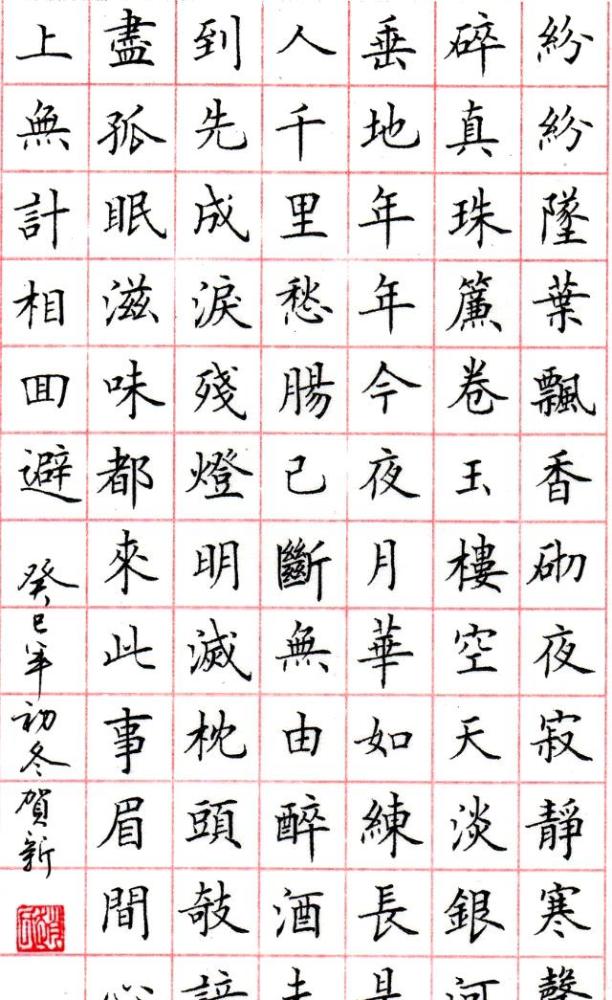 紛紛墜葉飄香砌夜寂靜寒聲
碎真珠簾卷玉樓空天淡銀河
垂地年年今夜月華如練長是
人千里愁腸已斷無由醉酒未
到先成淚殘燈明滅枕頭攲諳
盡孤眠滋味都來此事眉間心
上無計相囬避
癸巳年初冬賀新